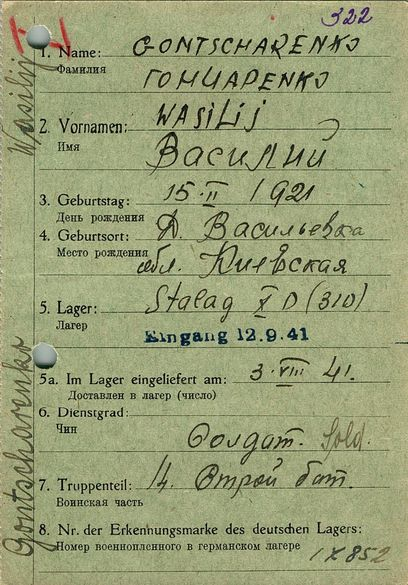 322
1. Name: GONTSCHARENKO
Фамилия ГОНЧАРЕНКО
2. Vornamen: WASILIJ
Имя Василий
3. Geburtstag: 15·II 1921
День рождения
4. Geburtsort: Д. Васильевка
Место рождения обл. Киевская
5. Lager: Stalag X D (310)
Лагерь
Eingang 12.9.41
5a. Im Lager eingeliefert am: 3·VIII 41.
Доставлен в лагерь (число)
6. Dienstgrad:
Чин
Солдат. Sold.
7. Truppenteil: 14. Строй бат.
Воинская часть
8. Nr. der Erkennungsmarke des deutschen Lagers:
Номер военнопленного в германском лагере
852
Gontscharenko Wasilij